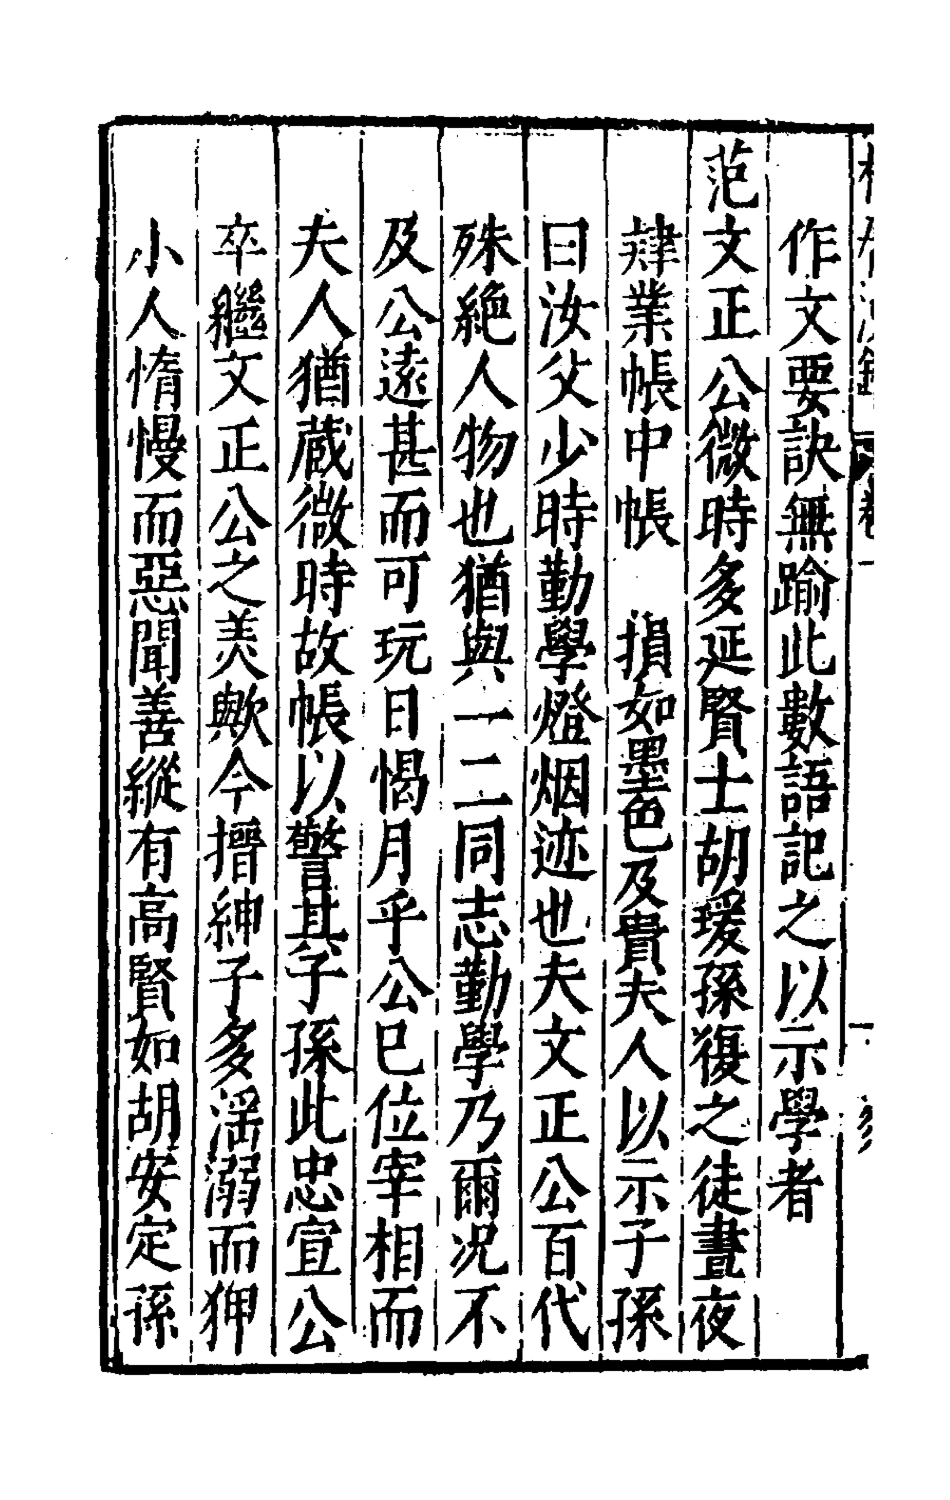 作文要訣無踰此數語記之以示學者
范文正公微時多延賢士胡瑗孫復之徒晝夜
肄業帳中帳 損如墨色及貴夫人以示子孫
曰汝父少時勤學燈烟迹也夫文正公百代
殊絶人物也猶與一二同志勤學乃爾况不
及公遠甚而可玩日愒月乎公已位宰相而
夫人猶蔵微時故帳以警其子孫此忠宣公
卒繼文正公之美歟今搢紳子多滛溺而狎
小人惰慢而惡聞善縱有高賢如胡安定孫